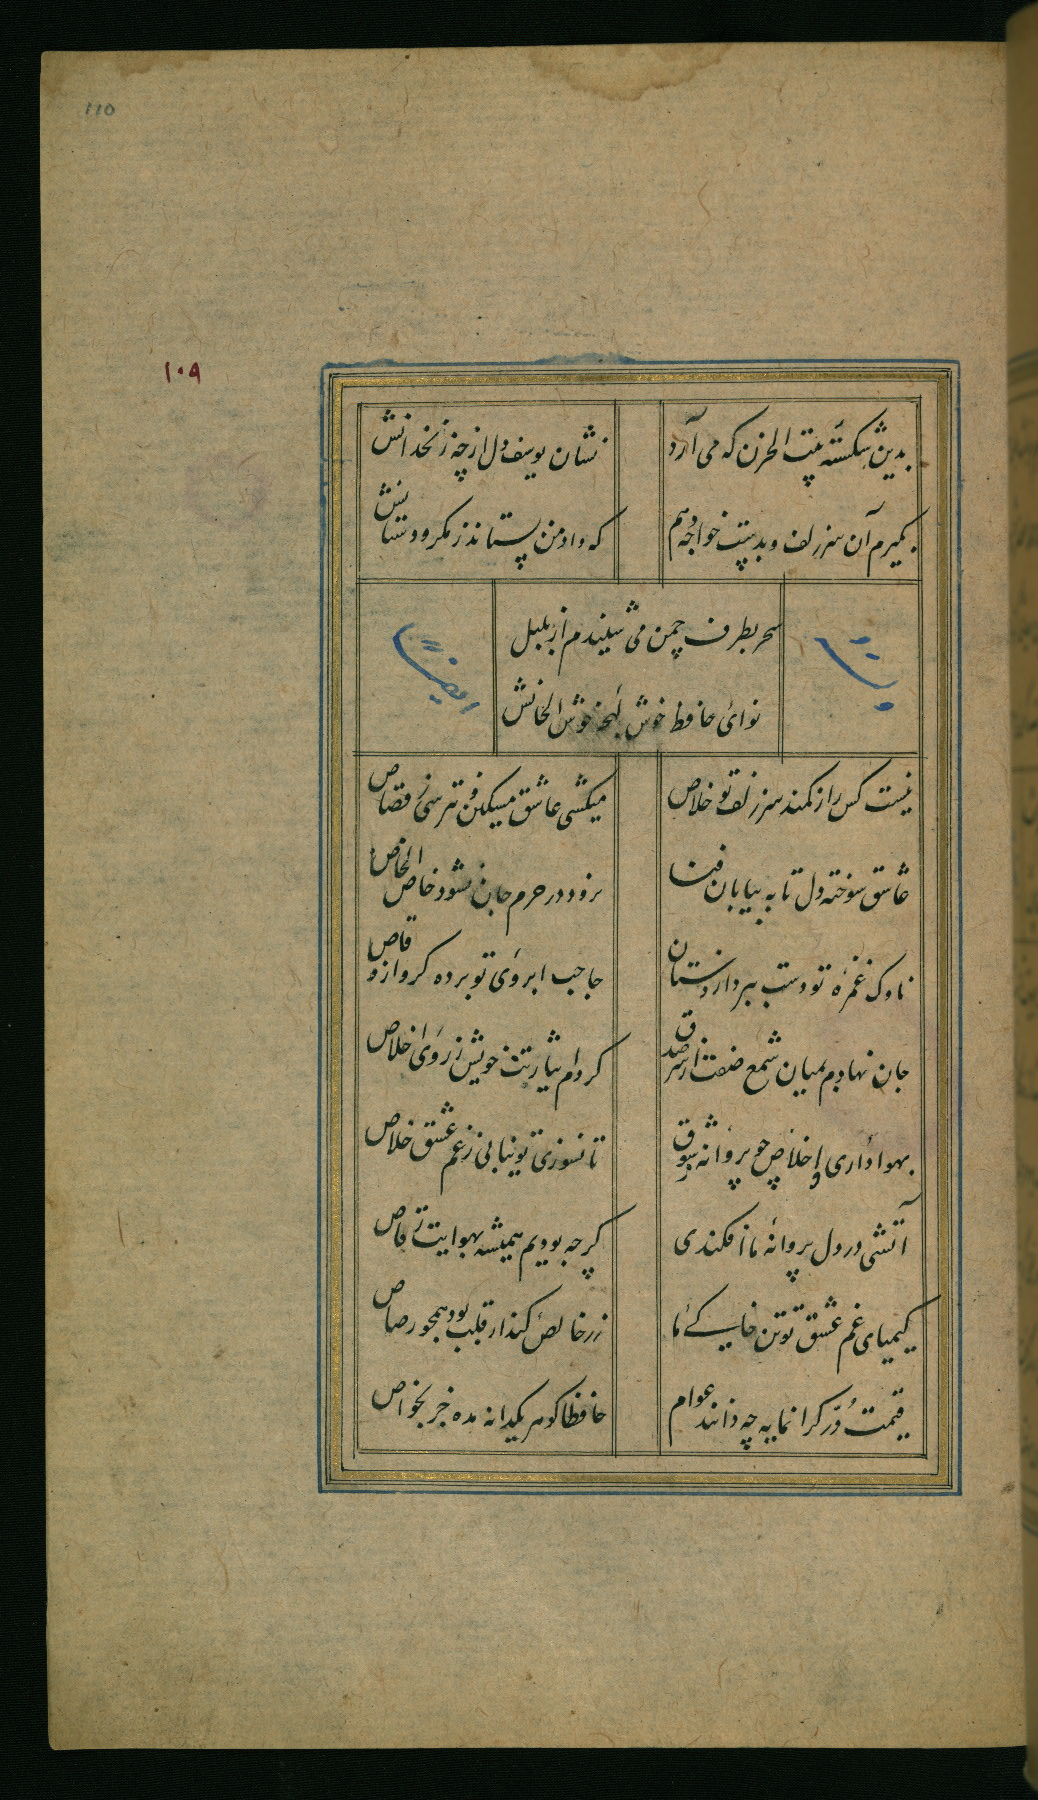 110
۱۰۹
بدین شکسته بیت الحزن که می آرد
نشان یوسف دل از چه زنخدانش
بگیرم آن سر زلف و بدست خواجه دهم
که داد من بستاند ز مکر و دستانش
سحر بطرف چمن می شنیدم از بلبل
نوائ حافظ خوش لهجهٔ خوش الحانش
وله
ایضا
نیست کس را ز کمند سر زلف تو خلاص
میکشی عاشق مسکین و نترسی ز قصاص
عاشق سوخته دل تا به بیابان فنا
نرود در حرم جان نشود خاص الخاص
ناوک غمزهٔ تو دست ببرد از دستان
حاجب ابروی تو برده گرو از وقاص
جان نهادم بمیان شمع صفت از سر صدق
کردم ایثار تن خویش ز روی اخلاص
بهواداری و اخلاص چو پروانه ز شوق
تا نسوزی تو نیابی ز غم عشق خلاص
آتشی در دل پروانهٔ ما افکندی
گرچه بودیم همیشه بهوایت رقاص
کیمیای غم عشق تو تن خاکئ ما
زر خالص کند ار قلب بود همچو رصاص
قیمت دُرّ گرانمایه چه دانند عوام
حافظا گوهر یکدانه مده جز بخواص